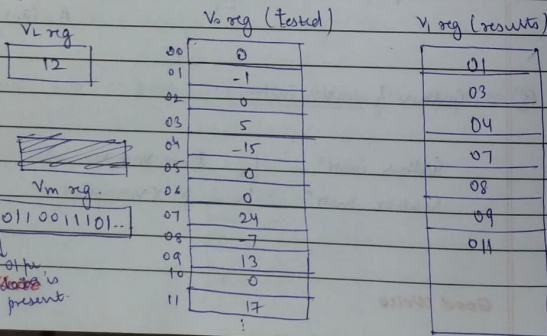 VL reg
12
Vm reg.
0110011101..
01 pe
is
present.
V0 reg (tested)
00 0
01 -1
02 0
03 5
04 -15
05 0
06 0
07 24
08 -7
09 13
10 0
11 17
⋮
V1 reg (results)
01
03
04
07
08
09
011